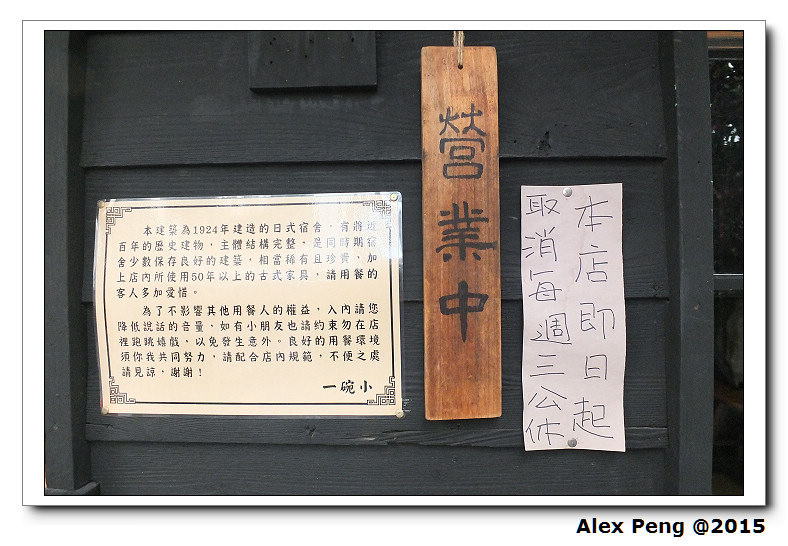 本建築為1924年建造的日式宿舍，有將近
百年的歷史建物，主體結構完整，是同時期宿
舍少數保存良好的建築，相當稀有且珍貴，加
上店內所使用50年以上的古式家具，請用餐的
客人多加愛惜。
為了不影響其他用餐人的權益，入內請您
降低說話的音量，如有小朋友也請約束勿在店
裡跑跳嬉戲，以免發生意外。良好的用餐環境
須你我共同努力，請配合店內規範，不便之處
請見諒，謝謝！
一碗小
營業中
本店即日起
取消每週三公休
Alex Peng @2015